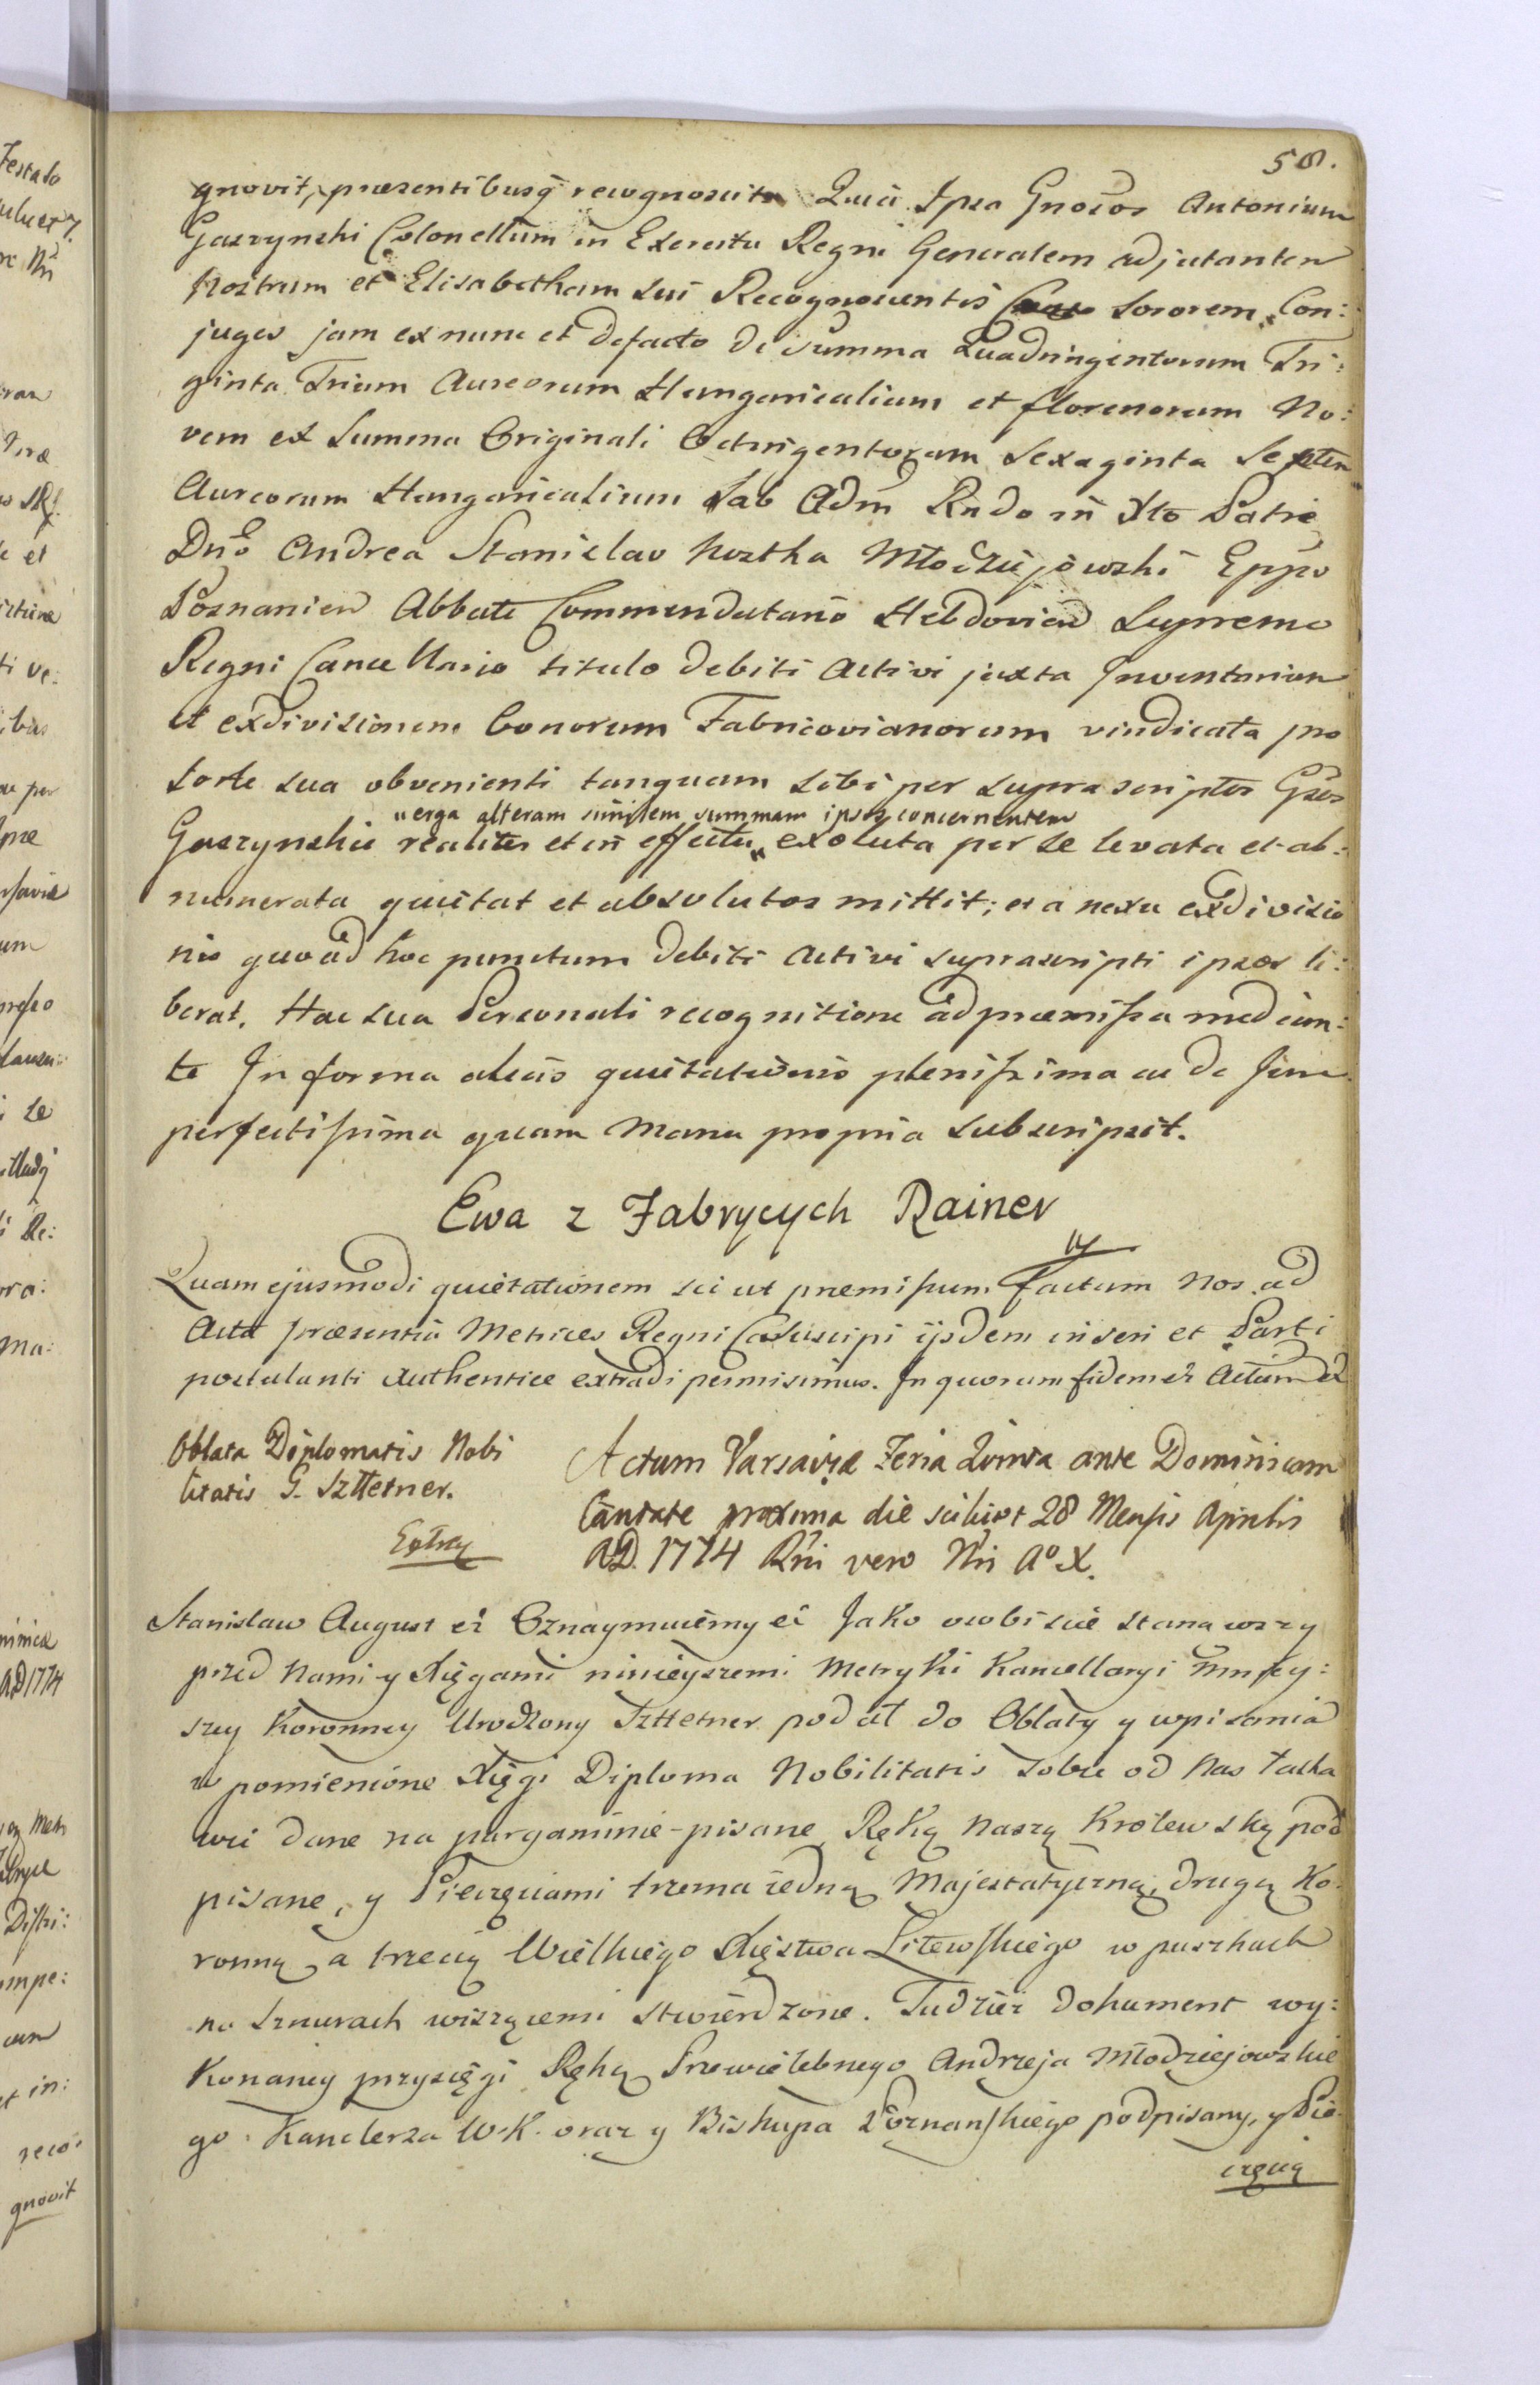 58.
gnovit, præsentibusq̃ recognoscit Quia Ipsa Gnosos Antonium
Gaszynski Colonellum in Exercitu Regni Generalem adjutantem
Nostrum et Elisabetham sui Recognoscentis sororem Con:
juges jam ex nunc et defacto de summa Quadringentorum Tri:
ginta Trium Aureorum Hungaricalium et florenorum No:
vem ex summa Originali Octingentorum sexaginta septem
Aureorum Hungaricalium ab Adm Rndo in Xto Patre
Dnõ Andrea Stanislao Kostka Młodziejowski Eppo
Posnanien Abbate Commendatario Hebdovien Supremo
Regni Cancellario titulo debiti activi juxta Inventarium
et exdivisionem bonorum Fabricovianorum vindicata pro
sorte sua obvenienti tanquam sibi per suprascriptos Gsos
„erga alteram similem summam ipsos concernentem
Gaszynskie realiter et in effectu „ exoluta per se levata et ab:
numerata quietat et absolutos mittit; et a nexu exdivisio
nis quoad hoc punctum debiti activi suprascripti ipsos li:
berat. Hac sua Personali recognitione ad præmissa median:
te In forma alias quietationis plenissima ac de Jure
perfectissima quam manu propria subscripsit.
Ewa z Fabrycych Rainer
Quam ejusmodi quietationem sic ut premissum factum Nos ad
Acta præsentia Metrices Regni Cas suscipi ijsdem inseri et Parti
postulanti authentice extradi permisimus. In quorum fidem et Actum ut
Oblata Diplomatis Nobi
litatis G. Szttetner.
Extrad
Actum Varsaviæ Feria Quinta ante Dominicam
Cantate proxima die scilicet 28 Mensis Aprilis
AD. 1774 Rni vero Nri Aº X.
Stanisław August et Oznaymuiemy et Jako osobiscie stanąwszy
przed Nami y Xięgami ninieyszemi Metryki Kancellaryi Mniey:
szey Koronney Urodzony Szttetner podał do Oblaty y wpisania
w pomienione Xięgi Diploma Nobilitatis sobie od Nas łaska
wie dane na pargaminie pisane Ręką Naszą Krolewską pod
pisane, y Pieczęciami trzema iedną Majestatyczną, drugą Ko:
ronną a trzecią Wielkiego Xięstwa Litewskiego w puszkach
na sznurach wiszącemi stwierdzone. Tudzież dokument wy:
konaney przysięgi Ręką Przewielebnego Andrzeja Młodziejowskie
go Kanclerza W.K. oraz y Biskupa Poznanskiego podpisany, y Pie
częcią